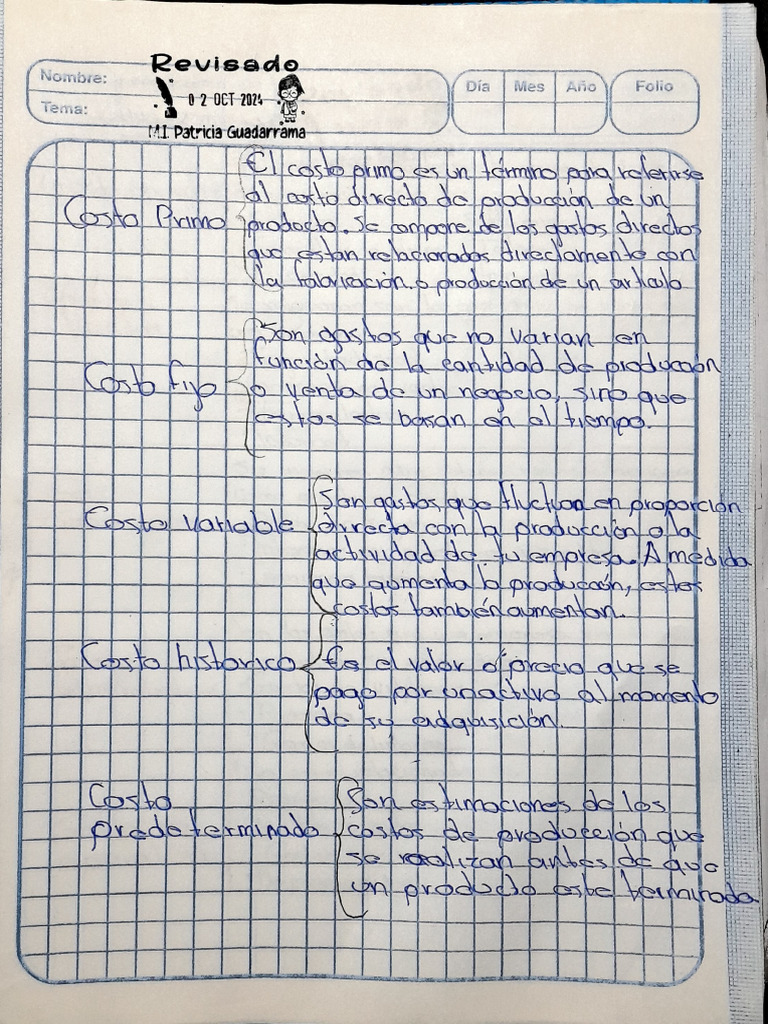 Revisado
Nombre:
Tema:
02 OCT 2024
M.I. Patricia Guadarrama
Día Mes Año
Folio
El costo primo es un término para referirse
al costo directo de producción de un
Costo Primo producto. Se compone de los gastos directos
que estan relacionados directamente con
la fabricación o producción de un articulo
Son gastos que no varian en
función de la cantidad de producción
Costo fijo o venta de un negocio, sino que
estos se basan en el tiempo.
Son gastos que fluctuan en proporción
Costo variable directa con la producción o la
actividad de tu empresa. A medida
que aumenta la producción, estos
costos también aumentan.
Costo historico Es el valor o precio que se
pago por un activo al momento
de su adquisición.
Costo Son estimaciones de los
predeterminado costos de producción que
se realizan antes de que
un producto este terminado